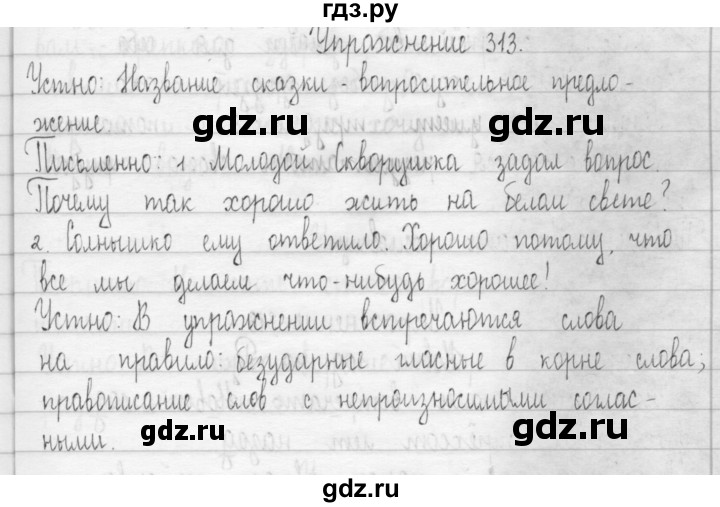 гдз.ру
Упражнение 313.
Устно: Название сказки - вопросительное предло-
жение
gdz.ru gdz.ru
Письменно: 1 Молодой Скворушка задал вопрос
Почему так хорошо жить на белом свете?
2. Солнышко ему ответило. Хорошо потому, что
все мы делаем что-нибудь хорошее!
gdz.ru gdz.ru
Устно: В упражнении встречаются слова
на правило: безударные гласные в корне слова;
правописание слов с непроизносимыми соглас-
ными.
gdz.ru gdz.ru
gdz.ru